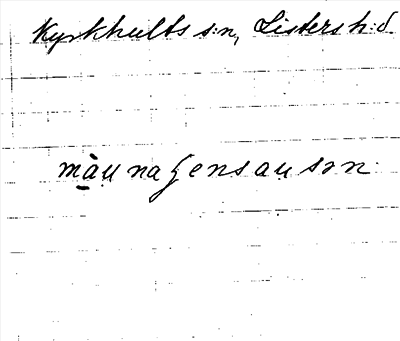 Kyrkhults s:n, Listers h:d
màu̯naʒensau̯sɘn